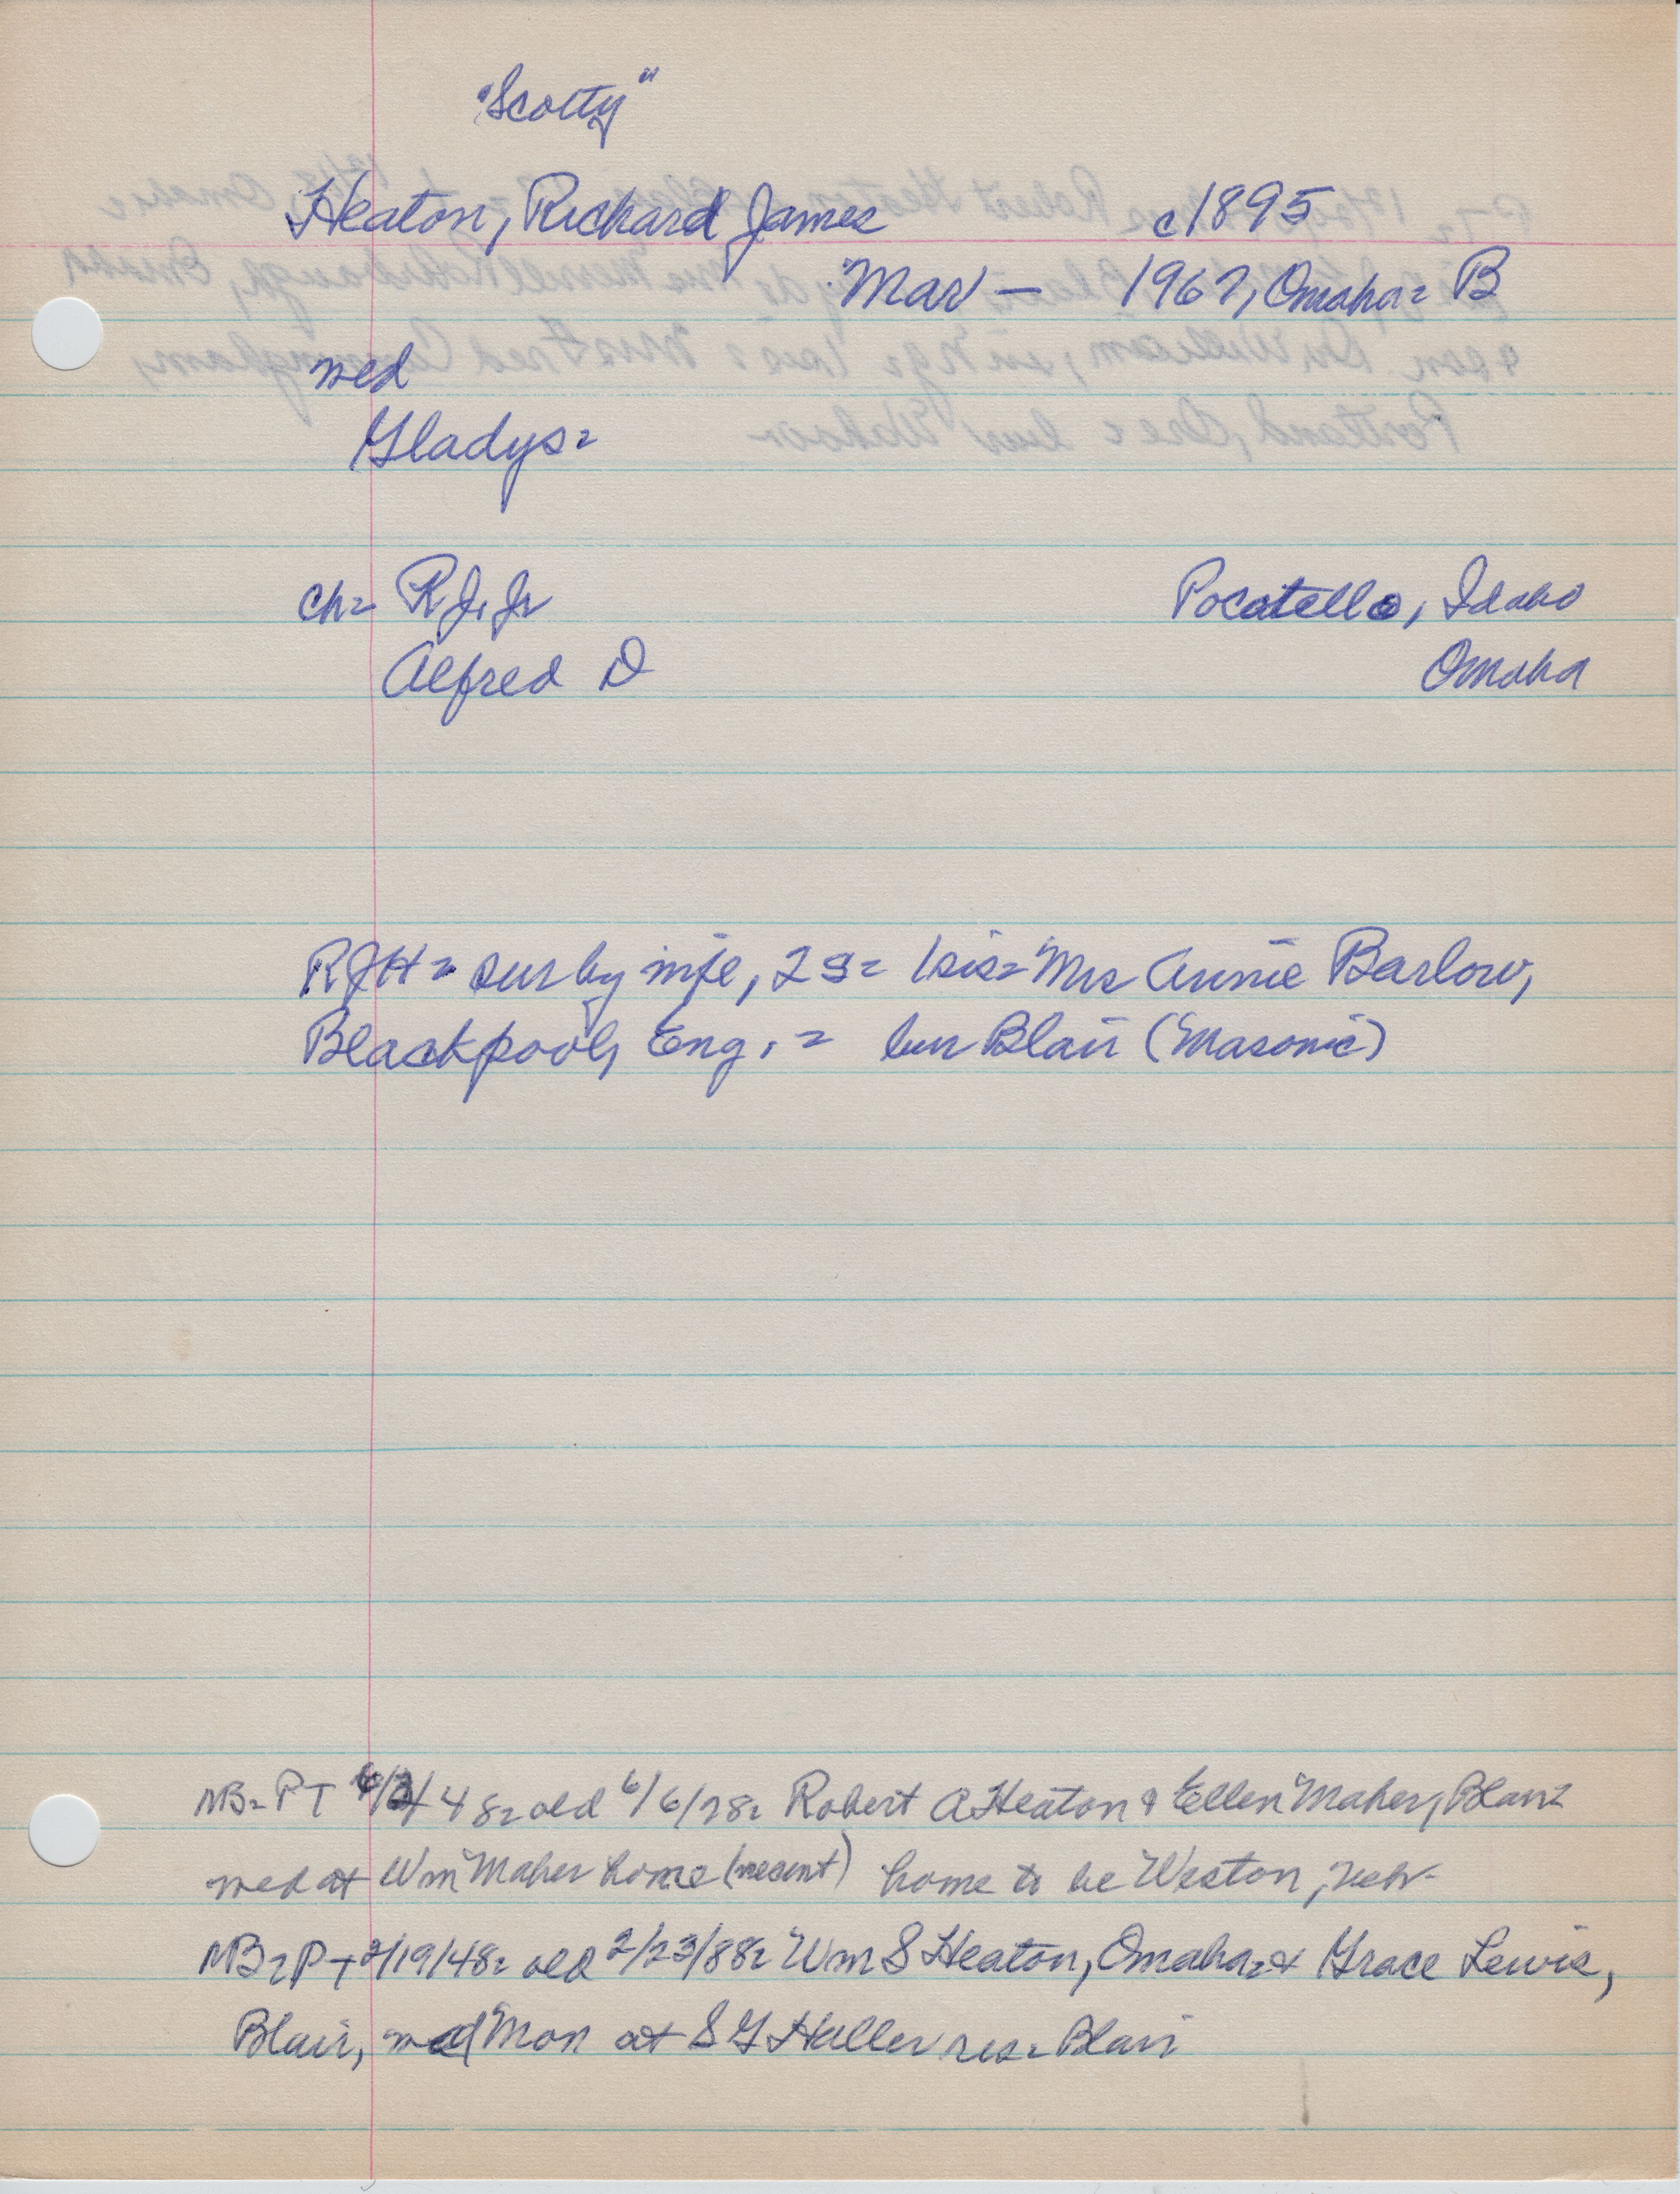 "Scotty"
Heaton, Richard James c1895
Mar — 1967, Omaha = B
wed
Gladys =
ch = R J, Jr Pocatello, Idaho
Alfred D Omaha
RJH = sur by wife, 2 s = 1 sis = Mrs Annie Barlow,
Blackpool, Eng. = bur Blair (Masonic)
MB = P T 48 = old 6/6/28 = Robert A Heaton & Ellen Maher, Blair =
wed at Wm Maher home (present) home to be Weston, Nebr
MB = P T 2/19/48 = old 2/23/88 = Wm S Heaton, Omaha = & Grace Lewis,
Blair, wed Mon at S G Haller res = Blair